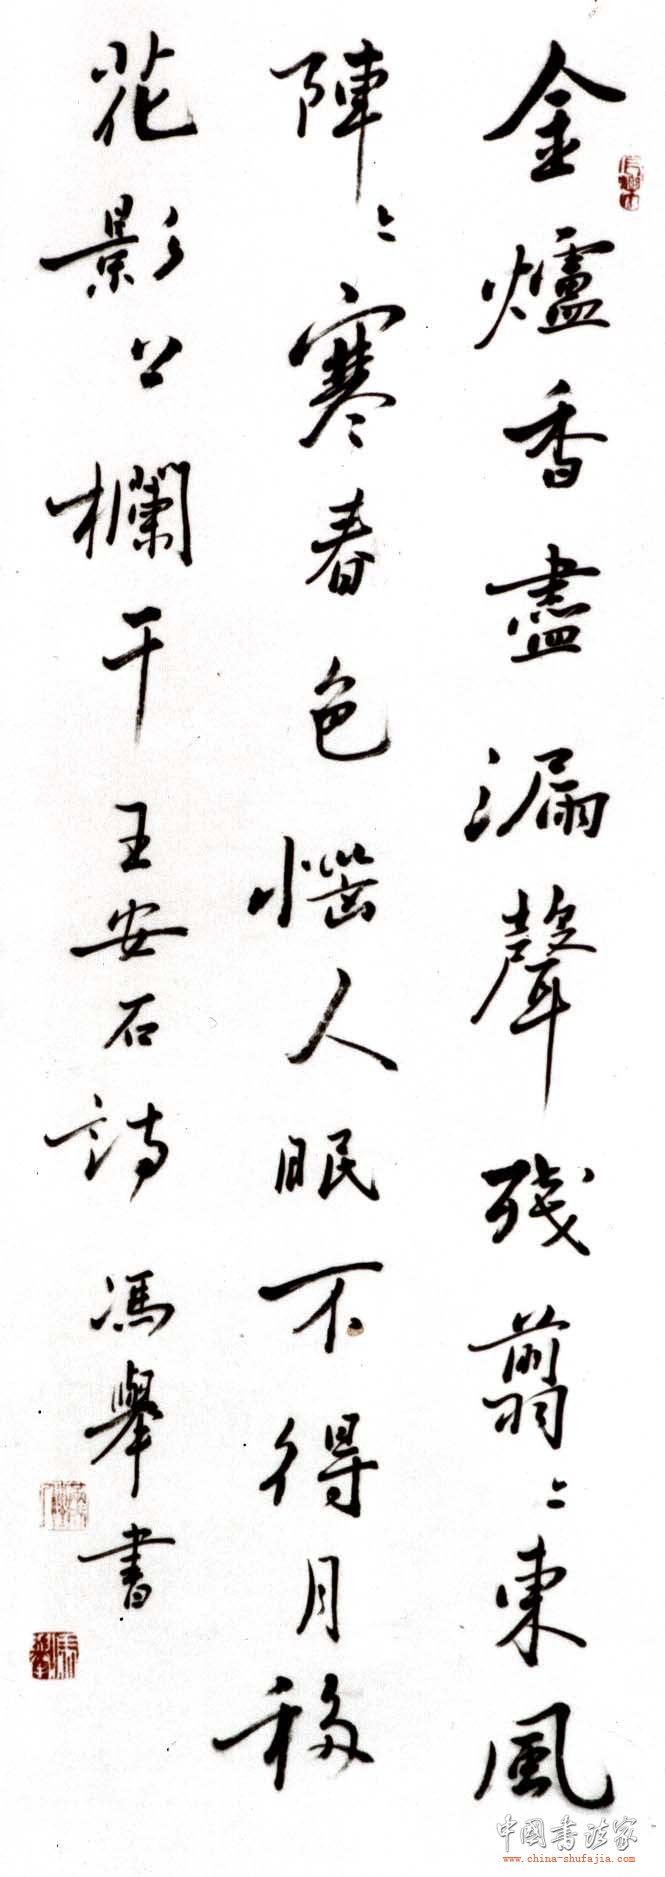 金爐香盡漏聲殘翦〻東風
陣〻寒春色惱人眠不得月移
花影上欄干王安石詩馮舉書
中国书法家
www.china-shufajia.com